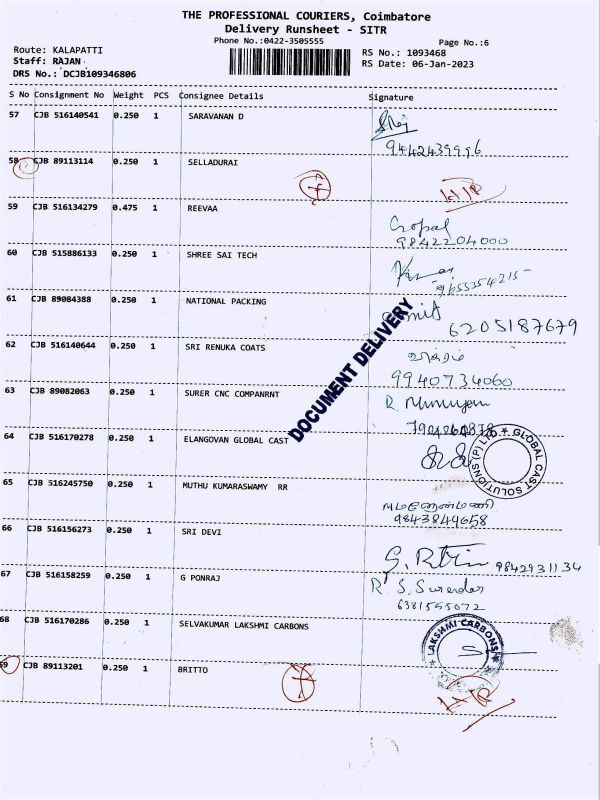 THE PROFESSIONAL COURIERS, Coimbatore
Delivery Runsheet - SITR
Phone No.:0422-3505555
Page No.:6
Route: KALAPATTI
Staff: RAJAN
DRS No.: DCJB109346806
RS No.: 1093468
RS Date: 06-Jan-2023
S No Consignment No Weight PCS Consignee Details Signature
57 CJB 516140541 0.250 1 SARAVANAN D
9442439996
58 CJB 89113114 0.250 1 SELLADURAI
59 CJB 516134279 0.475 1 REEVAA
Gopal
9842204000
60 CJB 515886133 0.250 1 SHREE SAI TECH
9655354215
61 CJB 89084388 0.250 1 NATIONAL PACKING
6205187679
DOCUMENT DELIVERY
62 CJB 516140644 0.250 1 SRI RENUKA COATS
9940734060
63 CJB 89082063 0.250 1 SURER CNC COMPANRNT
R.
64 CJB 516170278 0.250 1 ELANGOVAN GLOBAL CAST
GLOBAL CAST SOLUTIONS (P) LTD
65 CJB 516245750 0.250 1 MUTHU KUMARASWAMY RR
9843849658
66 CJB 516156273 0.250 1 SRI DEVI
9842931134
67 CJB 516158259 0.250 1 G PONRAJ
R. S. Surendar
6381555072
68 CJB 516170286 0.250 1 SELVAKUMAR LAKSHMI CARBONS
LAKSHMI CARBONS
69 CJB 89113201 0.250 1 BRITTO